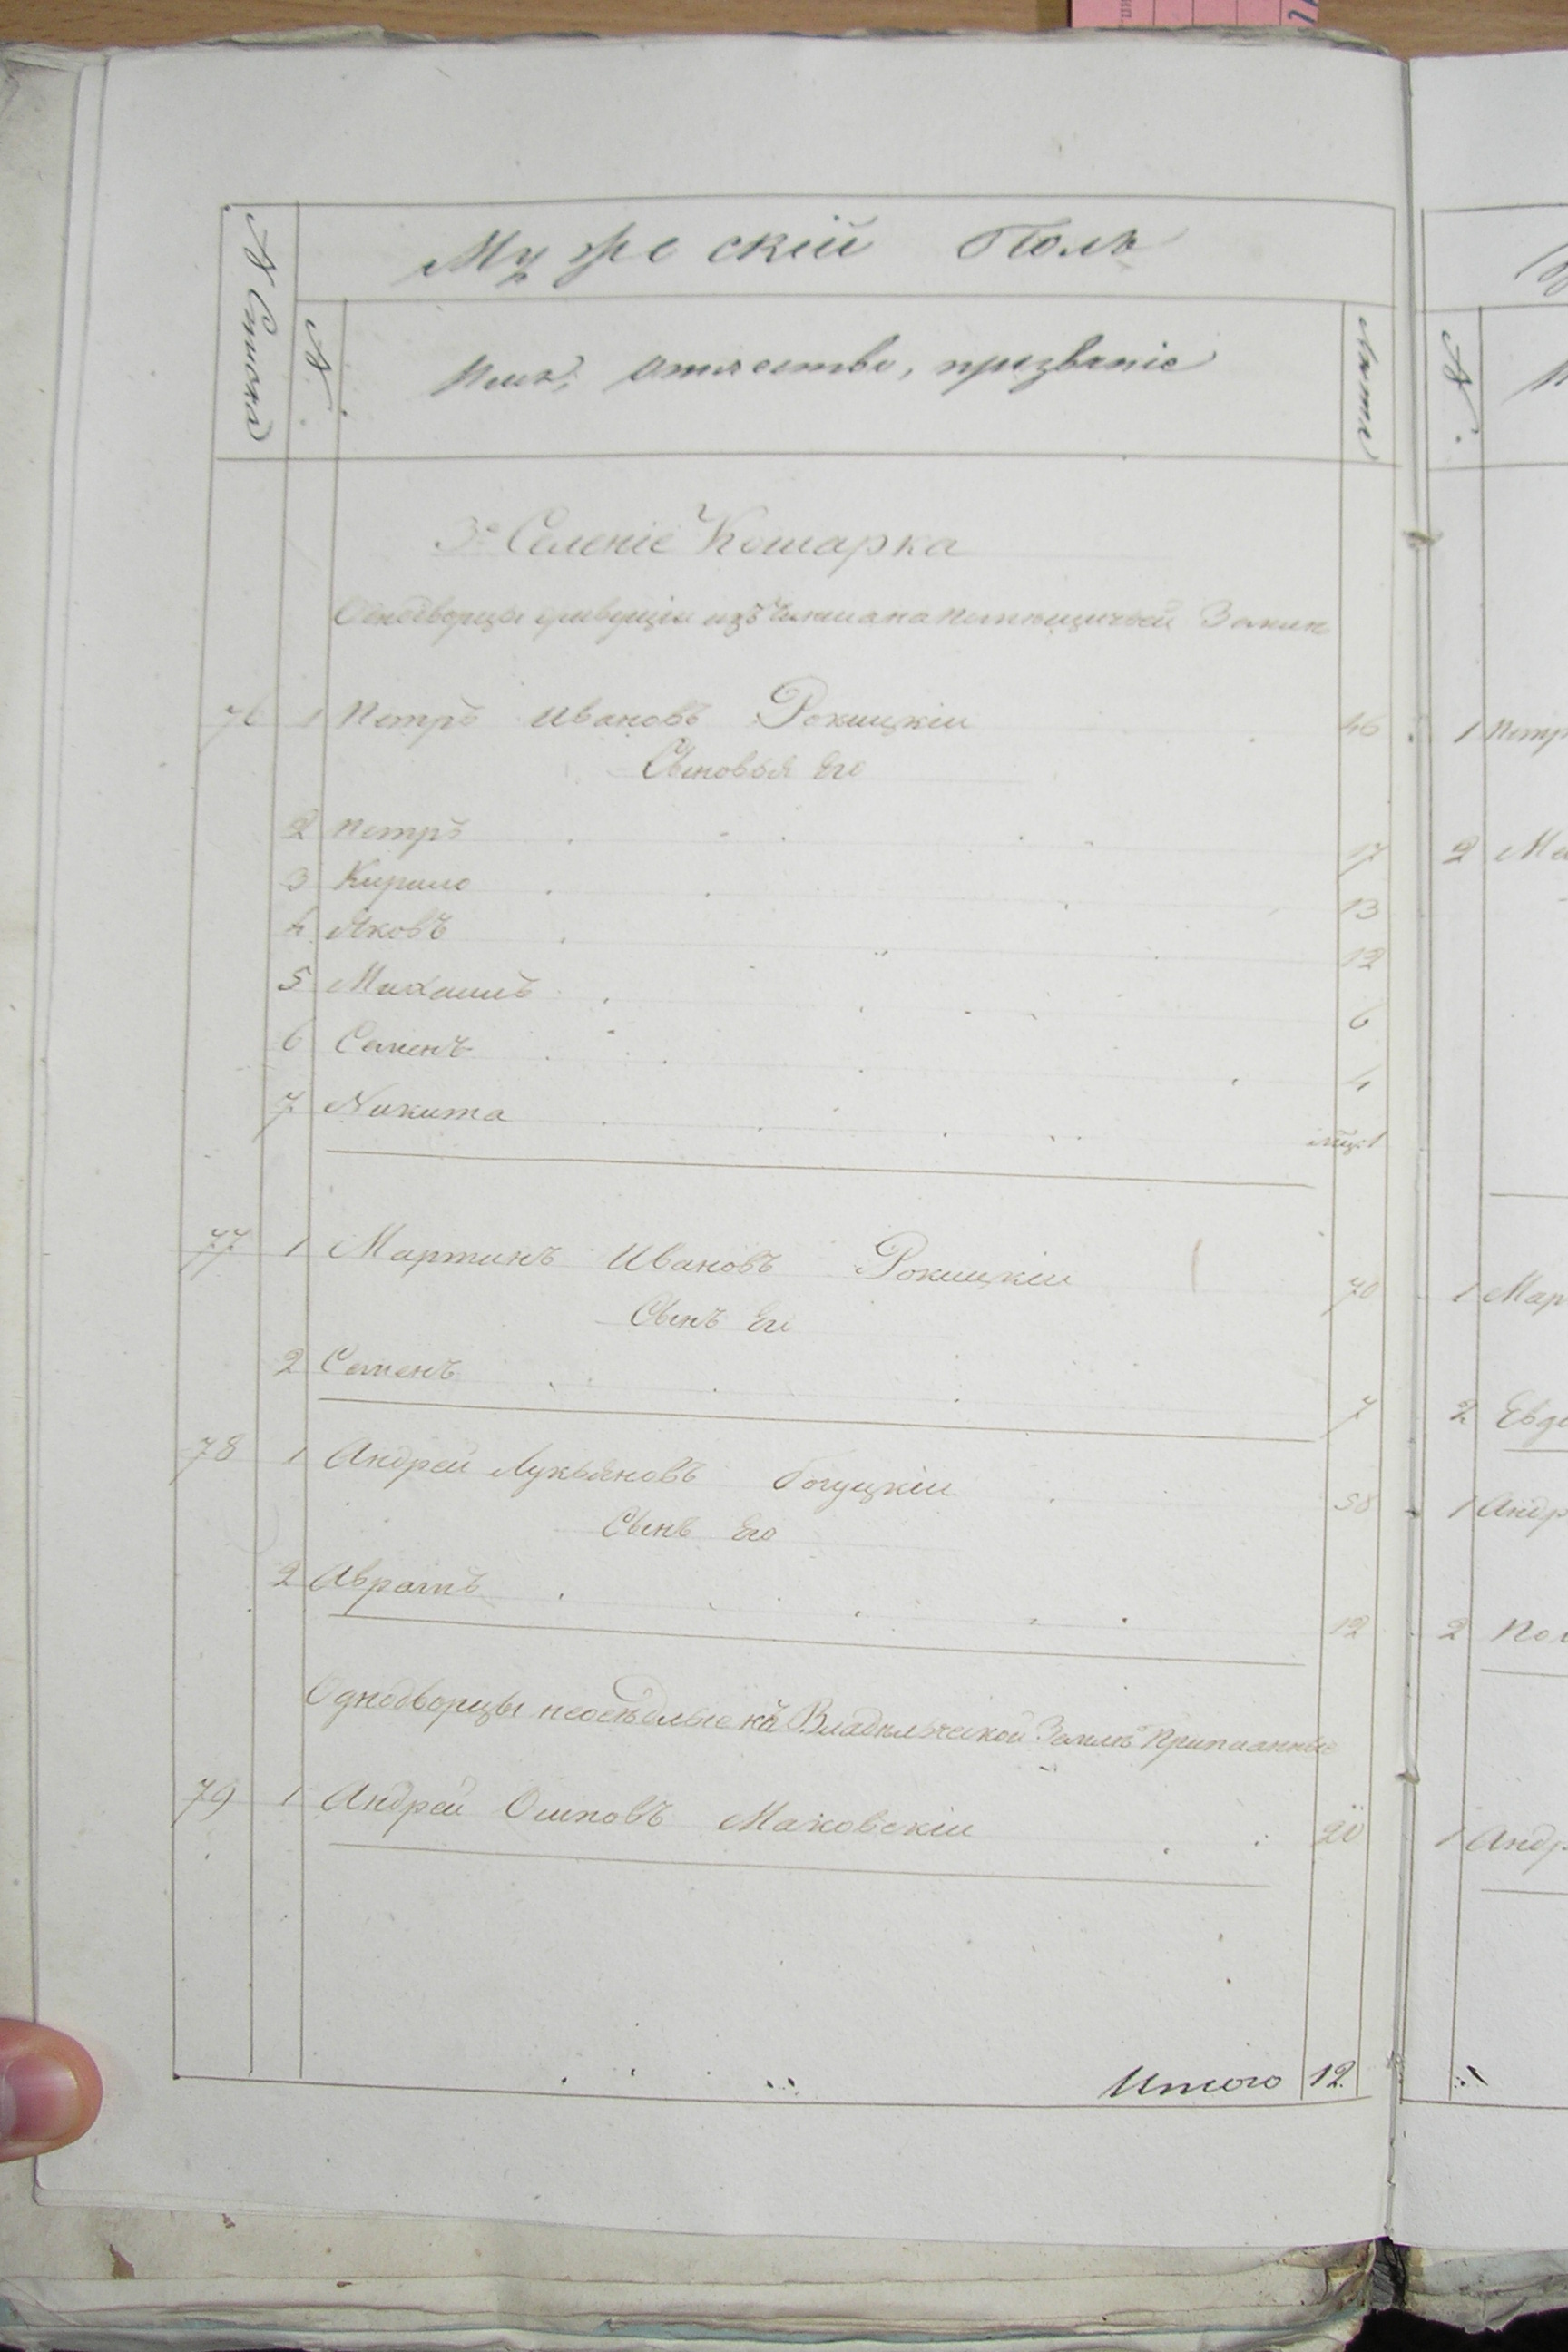 Мужескій Полъ
№ Списка
№
Имя, отчество, призваніе
Лѣта
3е Селеніе Кошарка
Однодворцы живущіи изъ Чинша на помѣщичьей Землѣ
76 1 Петръ Ивановъ Рокицкіи 46
Сыновья Его
2 Петръ 17
3 Кирило 13
4 Яковъ 12
5 Михаилъ 6
6 Семенъ 4
7 Никита 1
77 1 Мартинъ Ивановъ Рокицкіи 70
Сынъ Его
2 Семенъ 7
78 1 Андрей Лукьяновъ Богуцкіи 58
Сынъ Его
2 Аврамъ 12
Однодворцы неосѣдлые къ Владѣльческой Землѣ Приписанные
79 1 Андрей Осиповъ Маковскіи 20
Итого 12
№
1 Петр
2 Ма
1 Мар
2 Евдо
1 Андр
2 Пол
1 Андр